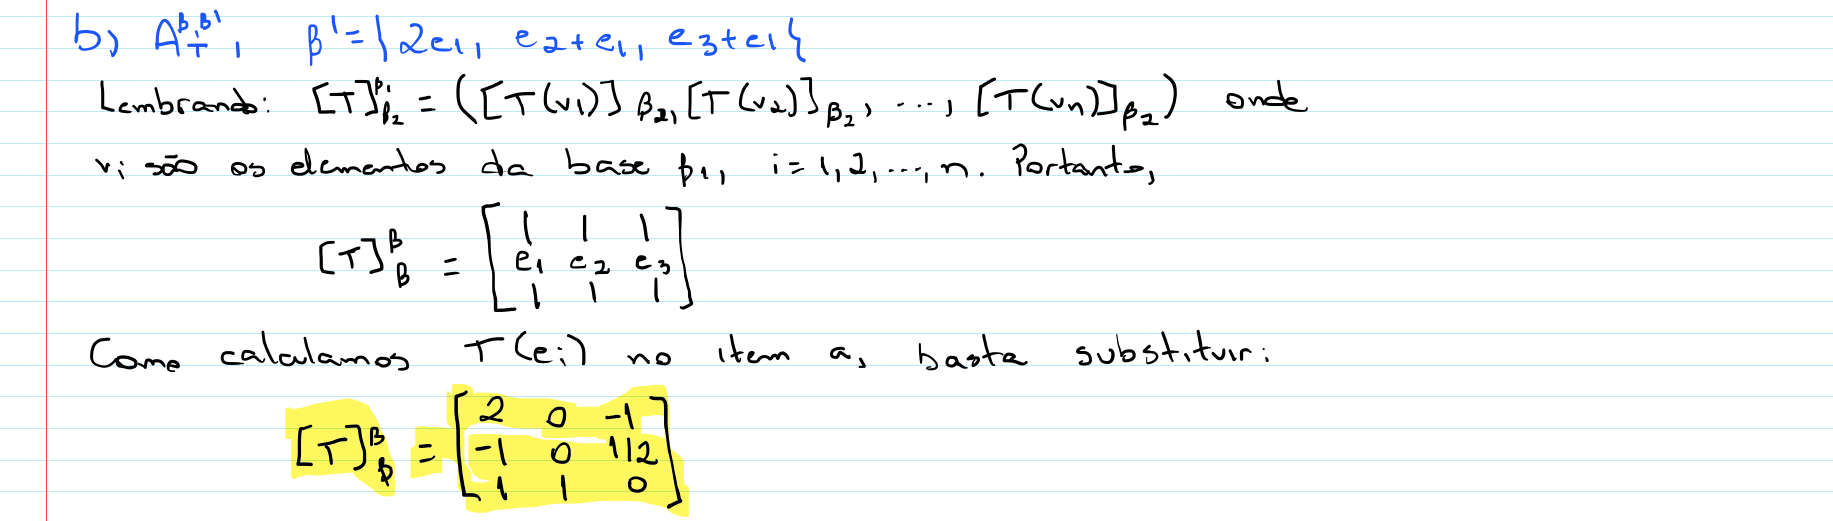 b) A_T^{β,β'}, β' = {2e₁, e₂+e₁, e₃+e₁}
Lembrando: [T]^{β₁}_{β₂} = ([T(v₁)]_{β₂}, [T(v₂)]_{β₂}, ..., [T(vn)]_{β₂}) onde
vi são os elementos da base β₁, i = 1, 2, ..., n. Portanto,
[T]^β_β = [ | | |
e₁ e₂ e₃
| | | ]
Como calculamos T(ei) no item a, basta substituir:
[T]^β_β = [ 2 0 -1
-1 0 1/2
1 1 0 ]